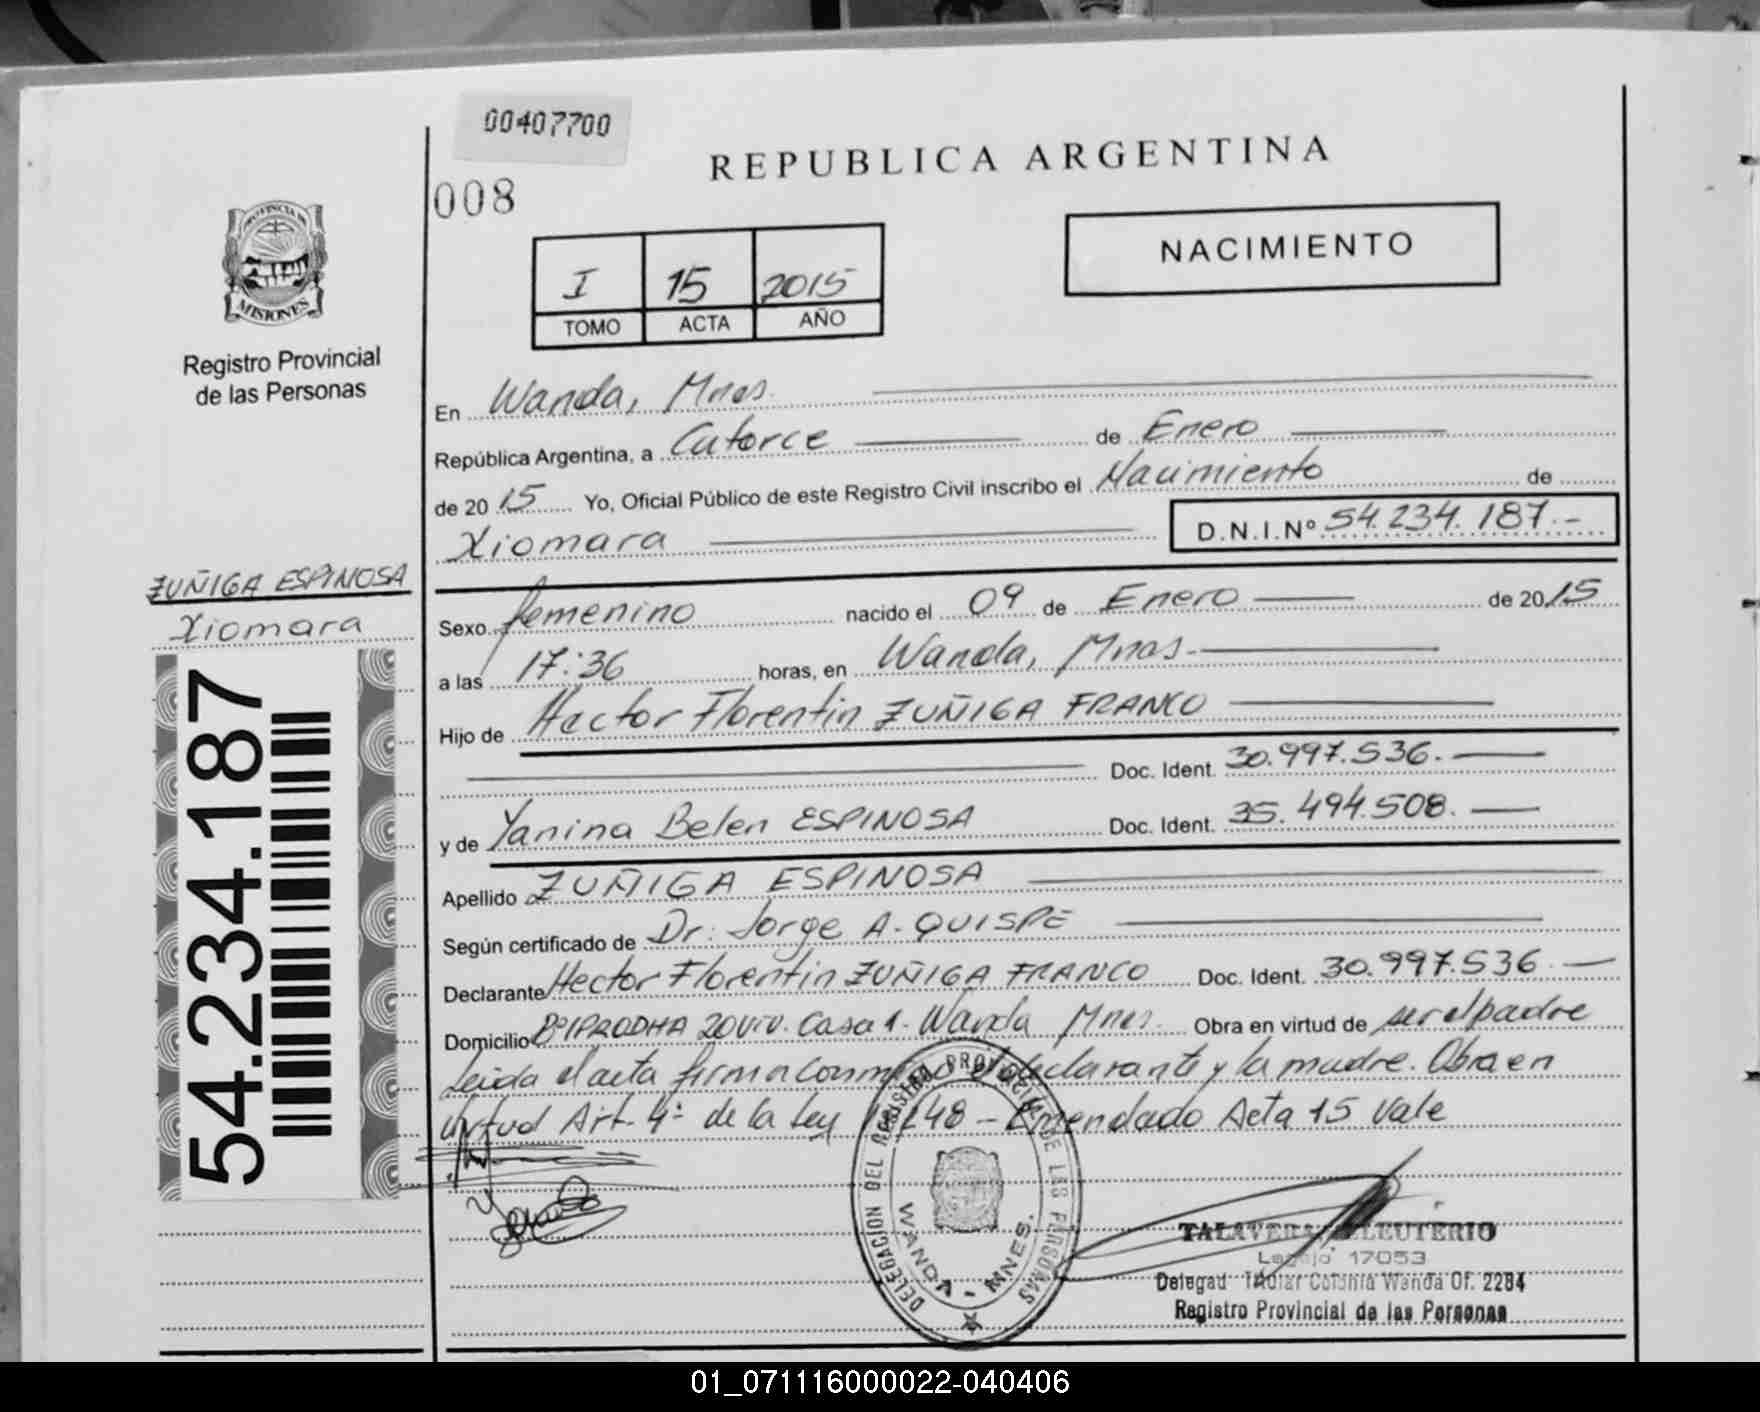 00407700
008
REPUBLICA ARGENTINA
PROVINCIA DE
MISIONES
Registro Provincial
de las Personas
NACIMIENTO
I 15 2015
TOMO ACTA AÑO
En Wanda, Mnes.
República Argentina, a Catorce de Enero
de 20 15 Yo, Oficial Público de este Registro Civil inscribo el Nacimiento de
Xiomara D.N.I.Nº 54.234.187.-
ZUÑIGA ESPINOSA
Xiomara
54.234.187
Sexo femenino nacido el 09 de Enero de 20 15
a las 17:36 horas, en Wanda, Mnes.-
Hijo de Hector Florentin ZUÑIGA FRANCO
Doc. Ident. 30.997.536.
y de Yanina Belen ESPINOSA Doc. Ident. 35.494.508.
Apellido ZUÑIGA ESPINOSA
Según certificado de Dr. Jorge A. QUISPE
Declarante Hector Florentin ZUÑIGA FRANCO Doc. Ident. 30.997.536.
Domicilio Bº IPRODHA 20 Viv. Casa 1. Wanda Mnes. Obra en virtud de ser el padre
Leida el acta firma declarante y la madre. Obra en
virtud Art. 4º de la Ley - Enmendado Acta 15 Vale
DELEGACION DEL REGISTRO PROVINCIAL DE LAS PERSONAS
WANDA - MNES.
TALAVERA ELEUTERIO
Legajo 17053
Delegad Titular Colonia Wanda Of. 2284
Registro Provincial de las Personas
01_071116000022-040406